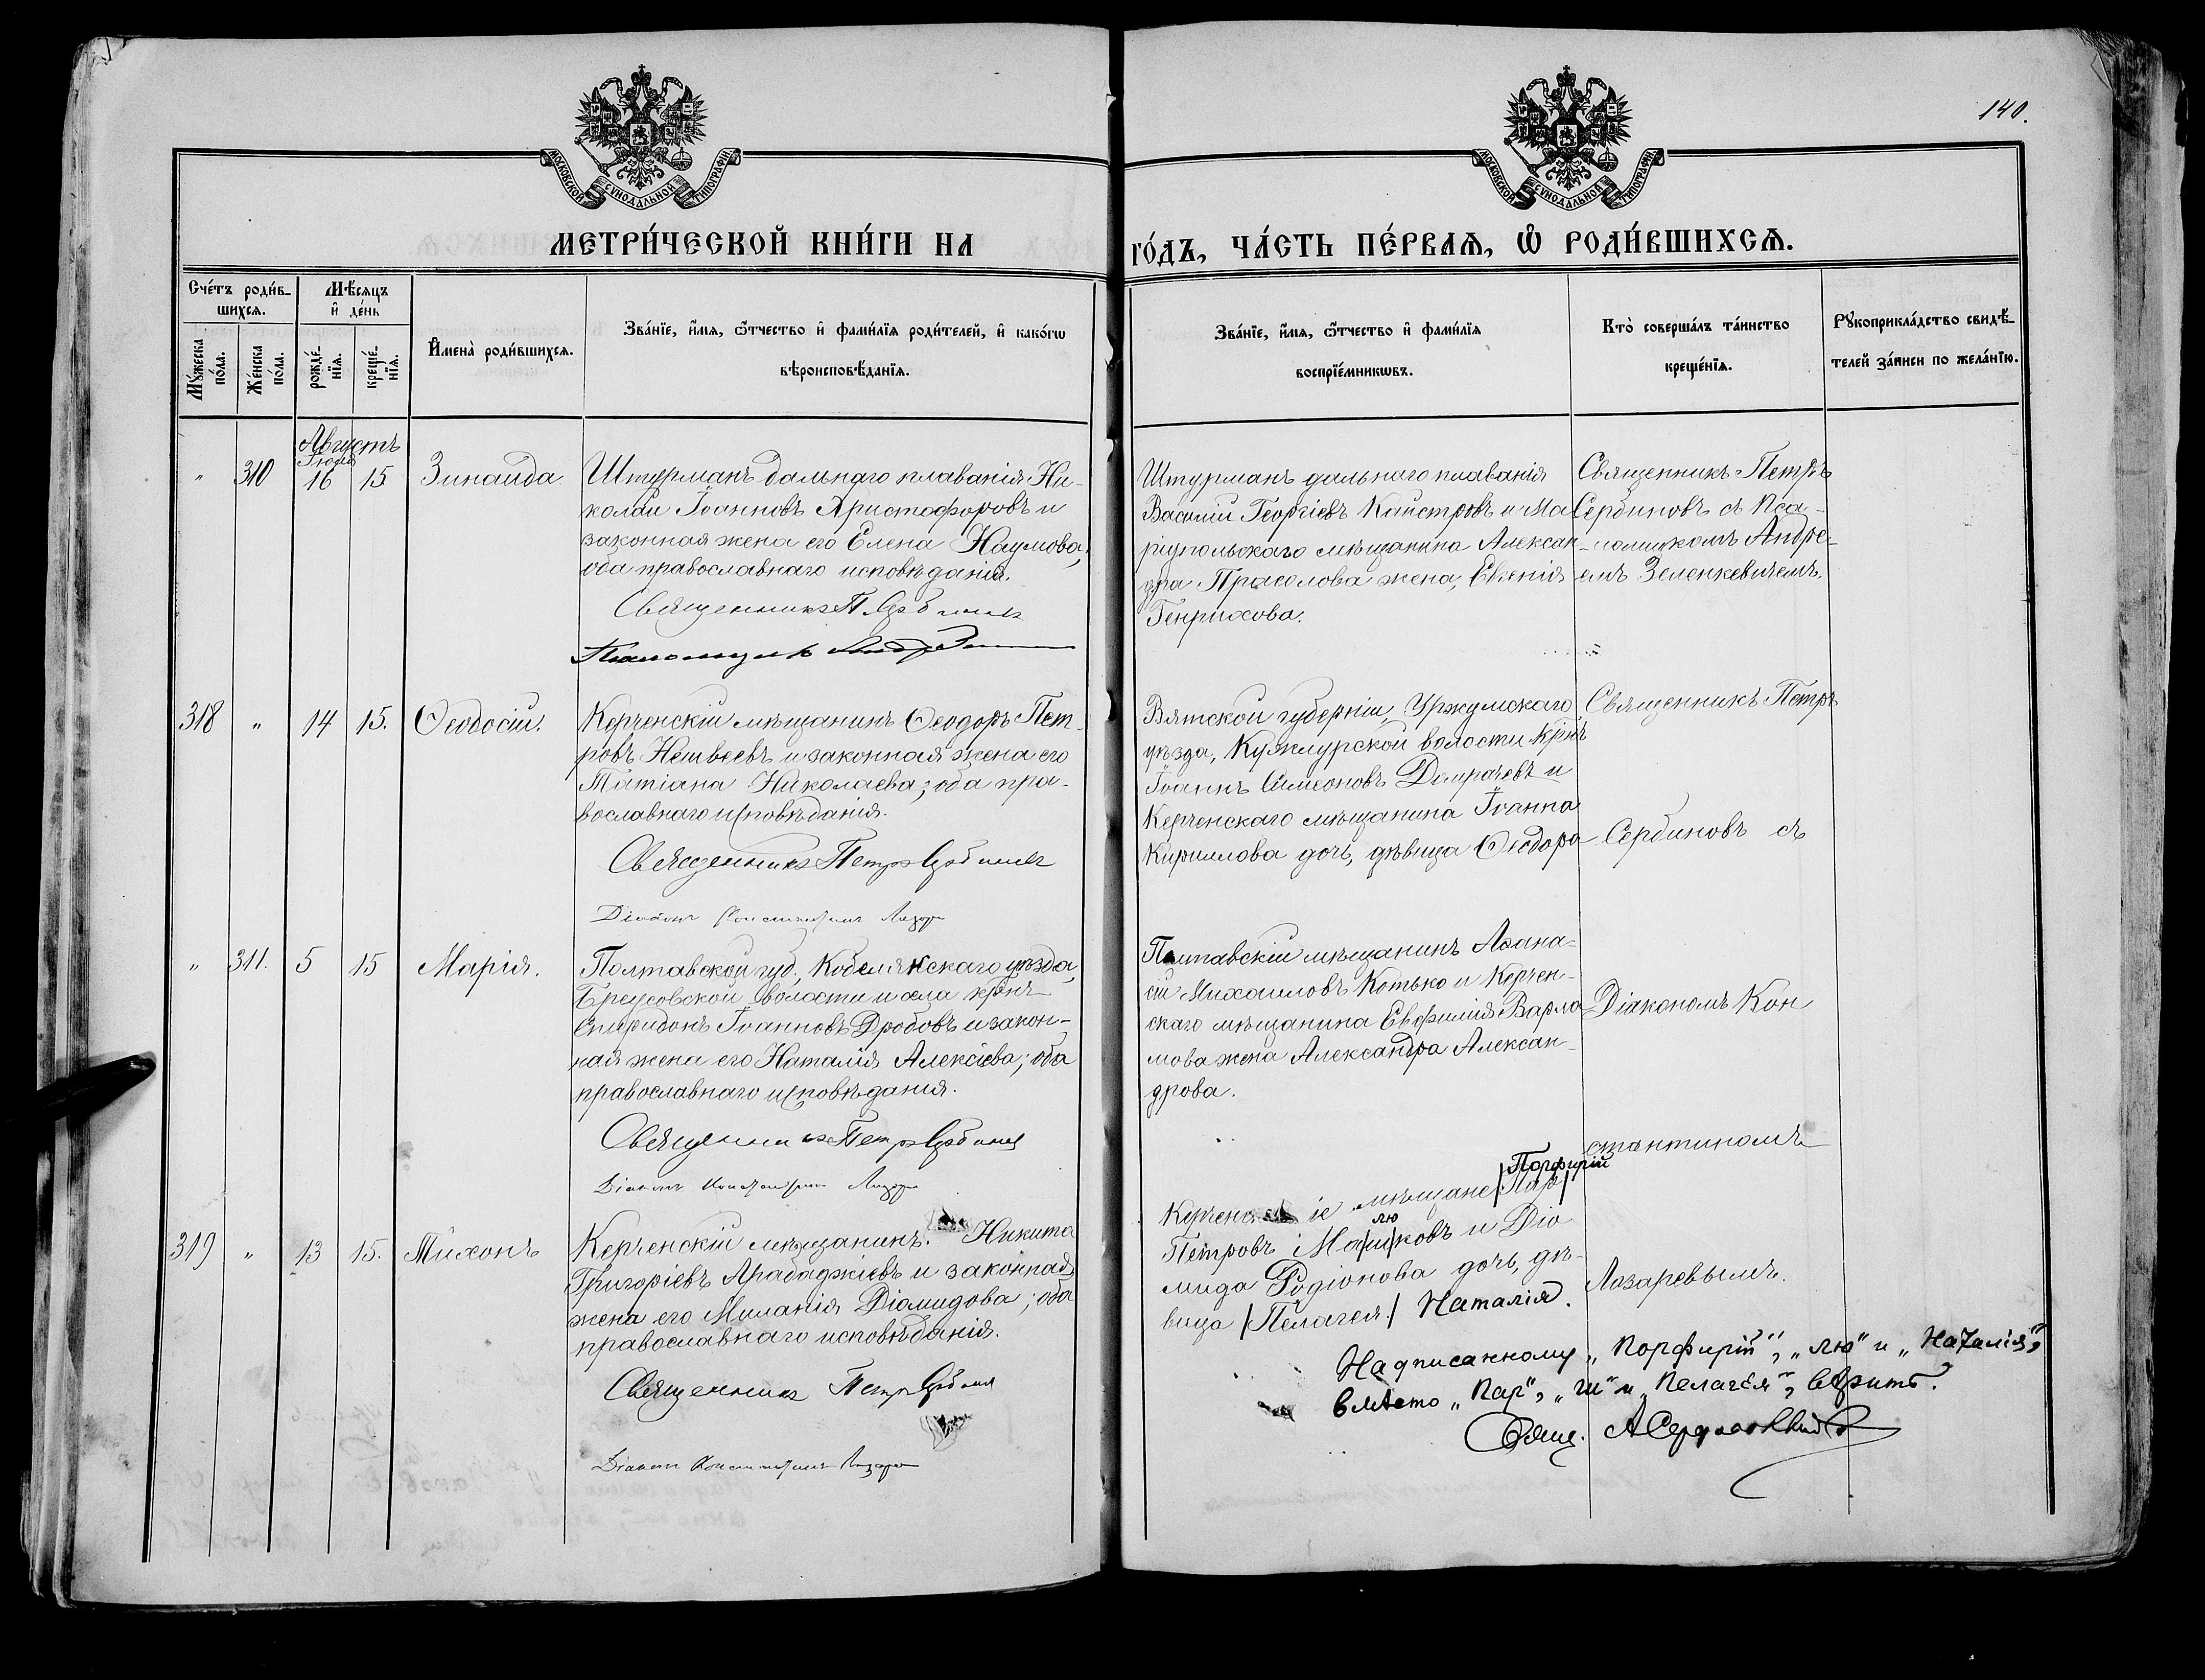 140.
МОСКОВСКОЙ СУНОДАЛЬНОЙ ТИПОГРАФІИ
МОСКОВСКОЙ СУНОДАЛЬНОЙ ТИПОГРАФІИ
МЕТРИ́ЧЕСКОЙ КНИ́ГИ НА
ГО́ДЪ, ЧА́СТЬ ПЕ́РВАѦ, Ѽ РОДИ́ВШИХСѦ.
Сче́тъ роди́в-
шихсѧ.
Мѣ́сѧцъ
и҆ де́нь
Мꙋ́жеска по́ла.
Же́нска по́ла.
рожде́-нїѧ.
креще́-нїѧ.
И҆мена̀ роди́вшихсѧ.
Зва́нїе, и҆́мѧ, ѻ҆́тчество и҆ фами́лїѧ роди́телей, и҆ како́гѡ
вѣроисповѣ́данїѧ.
Зва́нїе, и҆́мѧ, ѻ҆́тчество и҆ фами́лїѧ
воспрїе́мникѡвъ.
Кто̀ соверша́лъ та́инство
креще́нїѧ.
Рꙋкоприкла́дство свидѣ́-
телей за́писи по жела́нїю.
Августъ
Іюля
" 310 16 15 Зинаида
Штурманъ дальнаго плаванія Ни-
колай Іоанновъ Христофоровъ и
законная жена его Елена Наумова,
оба православнаго исповѣданія.
Священникъ П. Сербиновъ
Псаломщикъ
Штурманъ дальнаго плаванія
Василій Георгіевъ Кайстровъ и Ма
ріупольскаго мѣщанина Алексан-
дра Прасолова жена, Евгенія
Генрихова.
Священникъ Петръ
Сербиновъ съ Пса-
ломщикомъ Андре-
емъ Зеленкевичемъ.
318 " 14 15. Ѳеодосій.
Керченскій мѣщанинъ Ѳеодоръ Пет-
ровъ Нетвеевъ и законная жена его
Татіана Николаева; оба пра-
вославнаго исповѣданія.
Священникъ Петръ Сербиновъ
Діаконъ Константинъ Лазаревъ
Вятской губерніи, Уржумскаго
уѣзда, Кужнурской волости крнъ
Іоаннъ Симеоновъ Домрачевъ и
Керченскаго мѣщанина Іоанна
Кириллова дочь, дѣвица Ѳеодора
Священникъ Петръ
Сербиновъ съ
" 311. 5 15 Марія.
Полтавской губ., Кобелякскаго уѣзда,
Бреусовской волости и села крнъ
Спиридонъ Іоанновъ Дробовъ и закон-
ная жена его Наталія Алексіева; оба
православнаго исповѣданія.
Священникъ Петръ Сербиновъ
Діаконъ Константинъ Лазаревъ
Полтавскій мѣщанинъ Аѳана-
сій Михаиловъ Котько и Керчен-
скаго мѣщанина Евфимія Варла
мова жена Александра Алексан-
дрова.
Діакономъ Кон
стантиномъ
319 " 13 15. Тихонъ
Керченскій мѣщанинъ. Никита
Григоріевъ Арабаджіевъ и законная
жена его Миланія Діомидова; оба
православнаго исповѣданія.
Священникъ Петръ Сербиновъ
Діаконъ Константинъ Лазаревъ
Порфирій
Керченскіе мѣщане /Пар/
лю
Петровъ Ма/ш/ковъ и Діо
мида Родіонова дочь, дѣ-
вица /Пелагея./ Наталія.
Лазаревымъ.
Надписанному „Порфирій", „лю" и „Наталія",
вмѣсто „Пар", „ш" и „Пелагея", вѣрить.
Свящ.